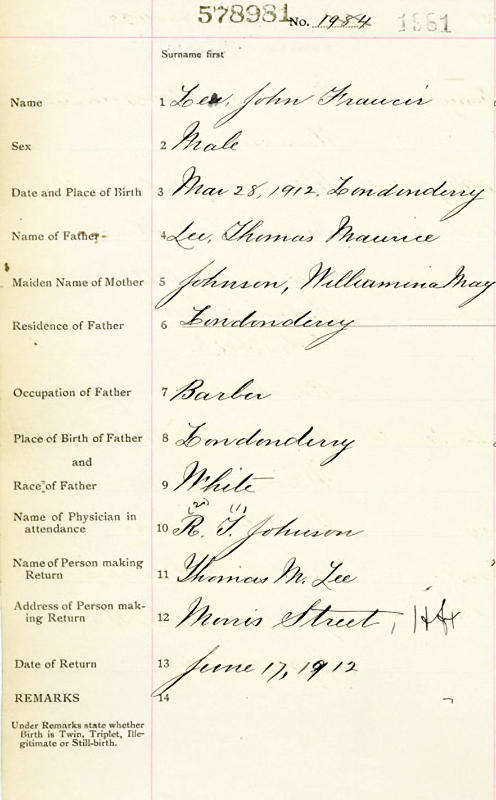 578981 No. 1984 1981
Surname first
Name 1 Lee, John Francis
Sex 2 Male
Date and Place of Birth 3 Mar 28, 1912. Londonderry
Name of Father 4 Lee, Thomas Maurice
Maiden Name of Mother 5 Johnson, Williamina May
Residence of Father 6 Londonderry
Occupation of Father 7 Barber
Place of Birth of Father 8 Londonderry
and
Race of Father 9 White
(20) (1)
Name of Physician in
attendance 10 R. T. Johnson
Name of Person making
Return 11 Thomas M. Lee
Address of Person mak-
ing Return 12 Morris Street, Hfx
Date of Return 13 June 17, 1912
REMARKS 14
Under Remarks state whether
Birth is Twin, Triplet, Ille-
gitimate or Still-birth.